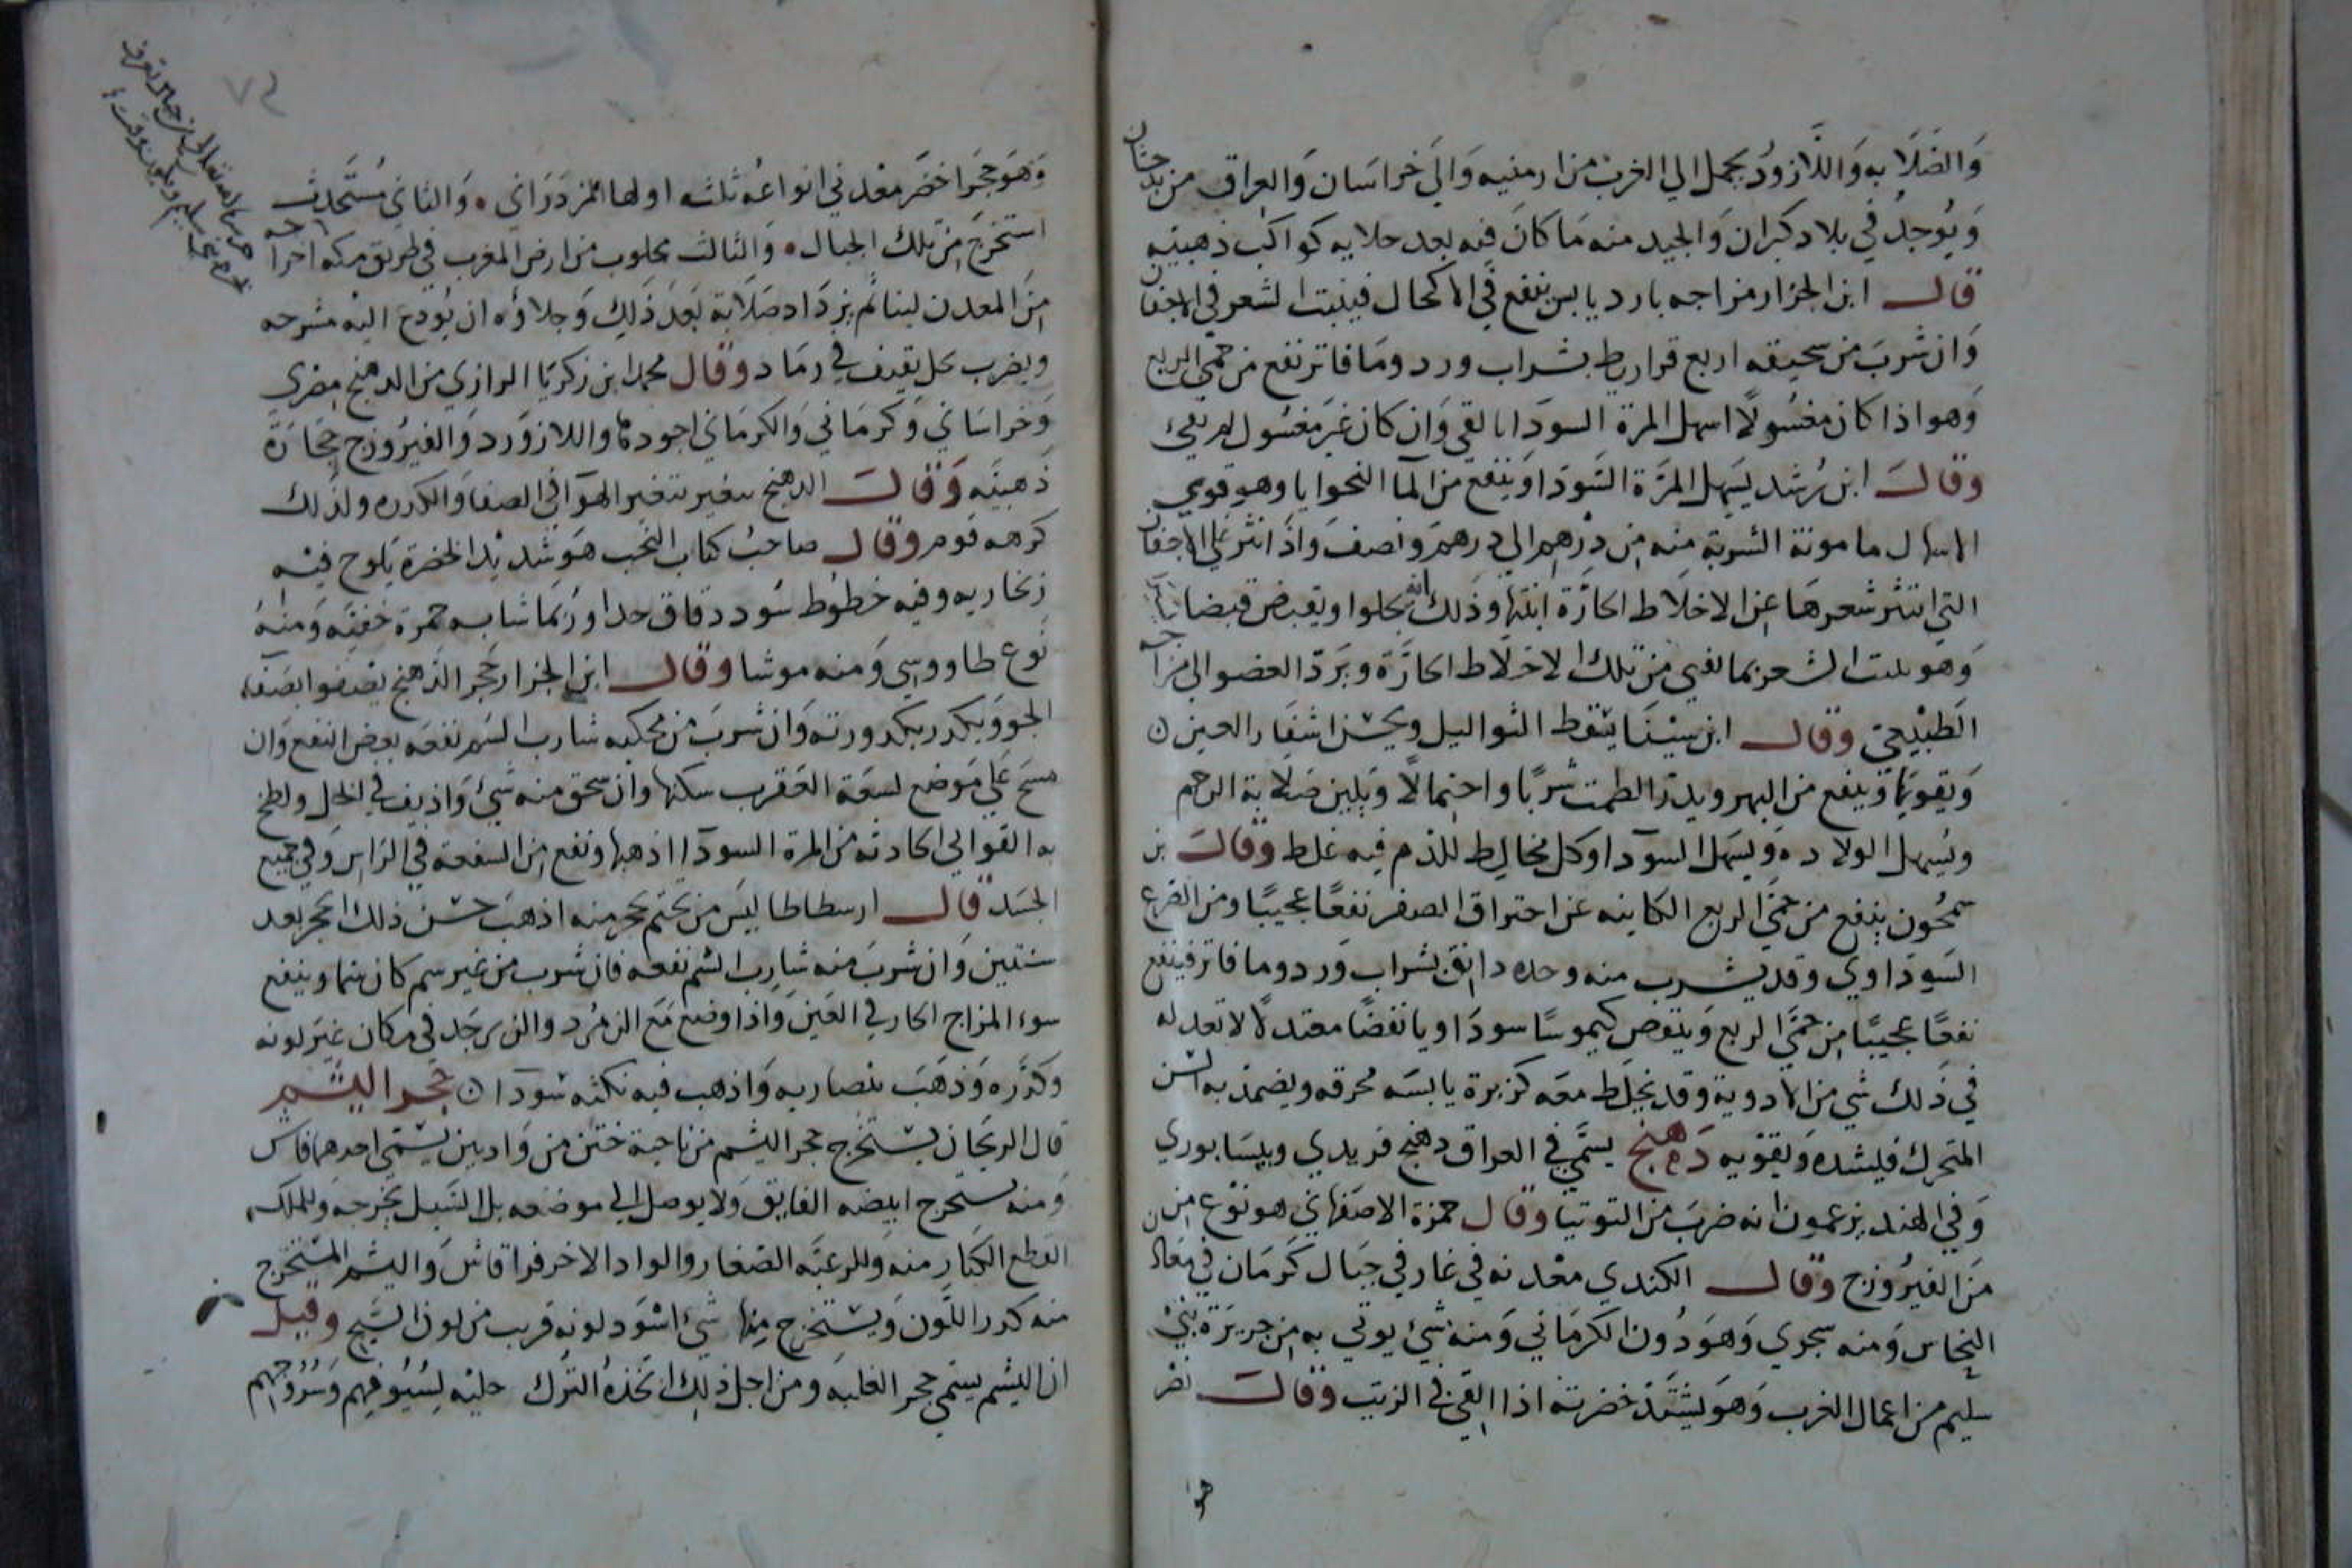 والصلابه واللازورد يحمل الى الغرب من ارمنيه والى خراسان والعراق من بدخشان
ويوجد في بلاد كران والجيد منه ما كان فيه بعد جلايه كواكب ذهبيه
قال ابن الجزار مزاجه بارد يابس ينفع في الاكحال فينبت الشعر في الاجفان
وان شرب من سحيقه اربع قراريط بشراب ورد وما فاتر نفع من حمى الربع
وهو اذا كان مغسولا اسهل المرة السودا بالقي وان كان غير مغسول لم يقئ
وقال ابن رشد يسهل المرة السودا وينفع من الماليخوايا وهو قوي
الاسهال مامونة الشربة منه من درهم الى درهم ونصف واذا نثر على الاجفان
التي انتثر شعرها عن الاخلاط الحارة انبتها وذلك انه يجلوا ويقبض قبضا
وهو ينبت الشعر بما يفني من تلك الاخلاط الحارة ويرد العضو الى مزاجه
الطبيعي وقال ابن سينا يسقط الثواليل ويحسن اشفار العين
ويقويها وينفع من البهر ويدر الطمث شربا واحتمالا ويلين صلابة الرحم
ويسهل الولاده ويسهل السودا وكل مخالط للدم فيه غلظ وقال بن
سمحون ينفع من حمى الربع الكاينه عن احتراق الصفر نفعا عجيبا ومن الصرع
السوداوي وقد يشرب منه وحده دانق بشراب ورد وما فاتر فينفع
نفعا عجيبا من حمى الربع وينفض كيموسا سوداويا نفضا معتدلا لا تعدله
في ذلك شي من الادوية وقد يخلط معه كزبرة يابسه محرقه ويضمد به السن
المتحرك فليشده ويقويه دهنج يسمى في العراق دهنج فريدي وبيسابوري
وفي الهند يزعمون انه ضرب من التوتيا وقال حمزة الاصفهاني هو نوع من
من الفيروزج وقال الكندي معدنه في غار في جبال كرمان في معادن
النحاس ومنه سجزي وهو دون الكرماني ومنه شئ يوتي به من جريرة بني
سليم من اعمال الغرب وهو يشتد خضرته اذا القي في الزيت وقال نصر
هو
وهو حجر اخضر معدني انواعه ثلثه اولها المزدراني والثاني مستحدث
استخرج من تلك الجبال والثالث مجلوب من ارض المغرب في طريق مكه اخراجه
من المعدن لينا ثم يزداد صلابة بعد ذلك وجلاؤه ان يودع اليه مشرحه
ويضرب بحل يقذف في رماد وقال محمد ابن زكريا الرازي من الدهنج مصري
وخراساني وكرماني والكرماني اجودها واللازورد والفيروزج حجارة
ذهبيه وقال الدهنج يتغير بتغير الهوا في الصفا والكدره ولذلك
كرهه قوم وقال صاحب كتاب النخب هو شديد الخضرة يلوح فيه
زنجاريه وفيه خطوط سود دقاق جدا وربما شابه حمرة خفيه ومنه
نوع طاووسي ومنه موشا وقال ابن الجزار حجر الدهنج يصفوا بصفاء
الجو ويكدر بكدورته وان شرب من محكه شارب السم نفعه بعض النفع وان
مسح على موضع لسعة العقرب سكنها وان سحق منه شئ واذيف في الخل ولطخ
به القوابي الحادثه من المرة السودا اذهبها ونفع من السعفة في الراس وفي جميع
الجسد قال ارسطاطاليس من يختم بحجر منه اذهب حسن ذلك الحجر بعد
سنتين وان شرب منه شارب السم نفعه فان شرب من غير سم كان سما وينفع
سوء المزاج الحار في العين واذا وضع مع الزمرد والزبرجد في مكان غير لونه
وكدره وذهب بنصاربه واذهب فيه نكته سودا حجر اليشم
قال الريحان يستخرج حجر اليشم من ناحية ختن من واديين يسمى احدهما فاس
ومنه يستخرج ابيضه الفايق ولا يوصل الى موضعه بل السيل يخرجه وللملك
القطع الكبار منه وللرعيه الصغار والواد الاخر قراقاش واليشم المستخرج
منه كدر اللون ويستخرج منها شئ اسود لونه قريب من لون السبج وقيل
ان اليشم يسمى حجر الغلبه ومن اجل ذلك اتخذه الترك حليه لسيوفهم وسروجهم